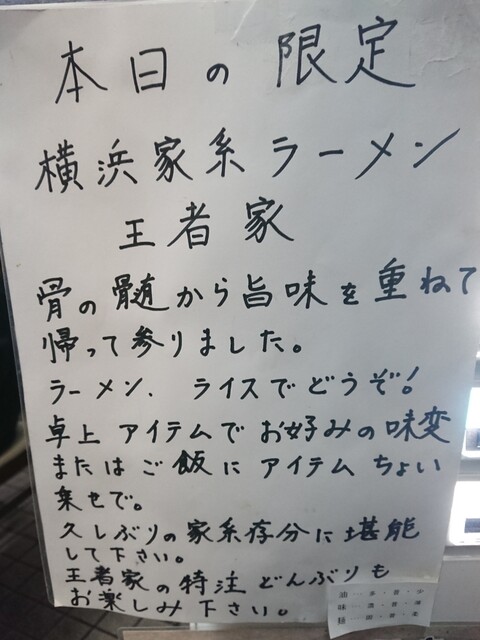 本日の限定
横浜家系ラーメン
王者家
骨の髄から旨味を重ねて
帰って参りました。
ラーメン、ライスでどうぞ!
卓上アイテムでお好みの味変
またはご飯にアイテムちょい
乗せで。
久しぶりの家系存分に堪能
して下さい。
王者家の特注どんぶりも
お楽しみ下さい。
油…多・普・少
味…濃・普・薄